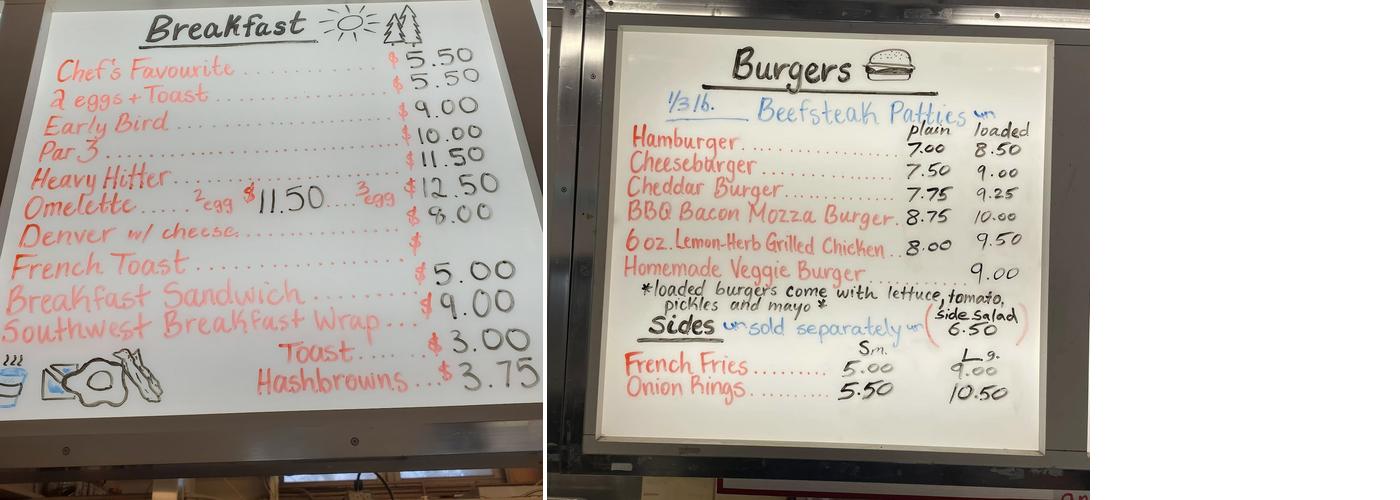 Breakfast
Chef's Favourite .......... $5.50
2 eggs + Toast .......... $5.50
Early Bird .......... $9.00
Par 3 .......... $10.00
Heavy Hitter .......... $11.50
Omelette ..... 2 egg $11.50 .... 3 egg $12.50
Denver w/ cheese .......... $8.00
French Toast .......... $
Breakfast Sandwich .......... $5.00
Southwest Breakfast Wrap ... $9.00
Toast ..... $3.00
Hashbrowns ... $3.75
Burgers
1/3 lb. Beefsteak Patties
plain loaded
Hamburger .......... 7.00 8.50
Cheeseburger .......... 7.50 9.00
Cheddar Burger .......... 7.75 9.25
BBQ Bacon Mozza Burger. 8.75 10.00
6 oz. Lemon-Herb Grilled Chicken .. 8.00 9.50
Homemade Veggie Burger .......... 9.00
*loaded burgers come with lettuce, tomato,
pickles and mayo *
Sides sold separately (side salad 6.50)
Sm. Lg.
French Fries .......... 5.00 9.00
Onion Rings .......... 5.50 10.50